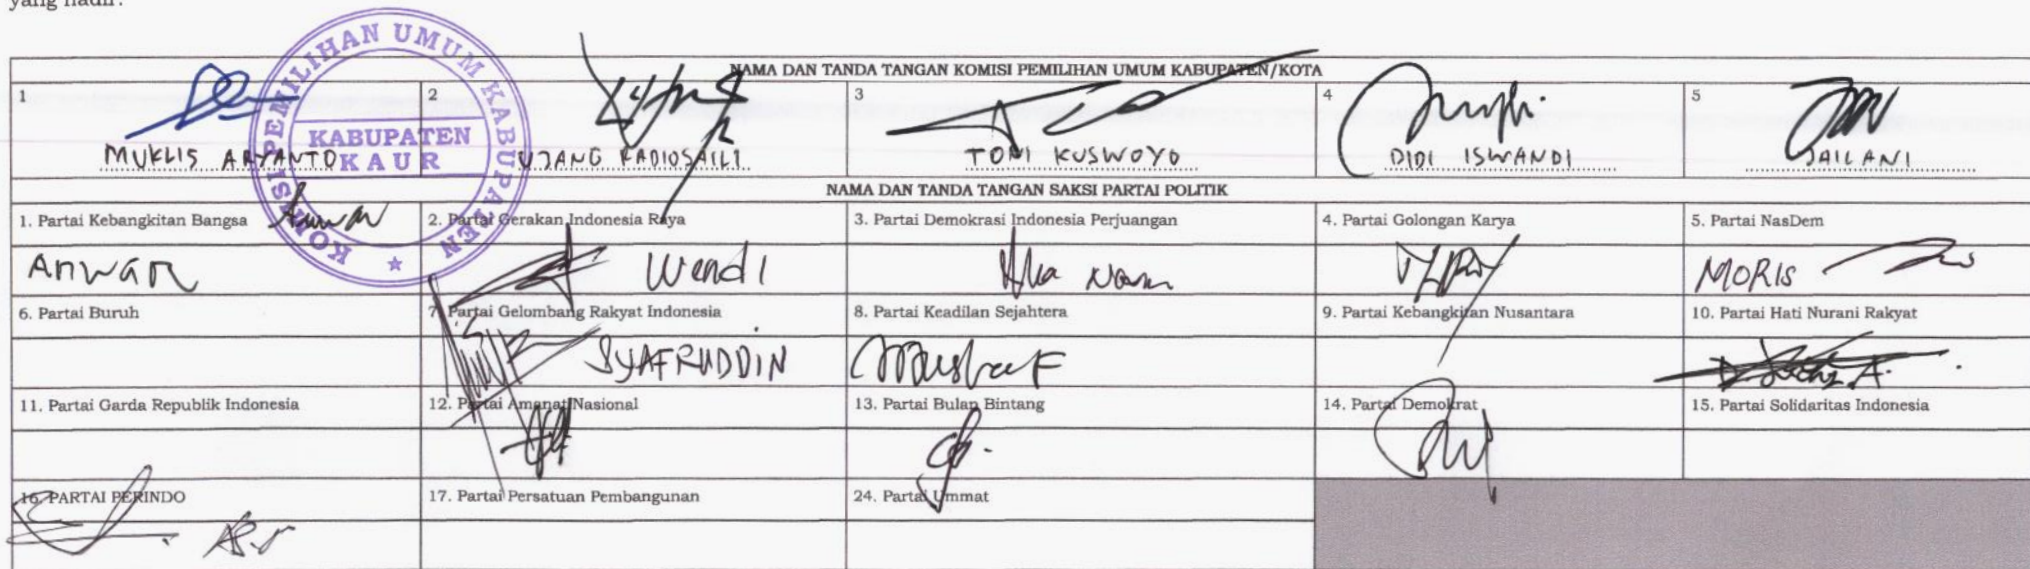 yang hadir.
NAMA DAN TANDA TANGAN KOMISI PEMILIHAN UMUM KABUPATEN/KOTA
1
2
3
4
5
KOMISI PEMILIHAN UMUM KABUPATEN
KABUPATEN
KAUR
MUKLIS ARYANTO
UJANG RADIOSAILI
TONI KUSWOYO
DIDI ISWANDI
JAILANI
NAMA DAN TANDA TANGAN SAKSI PARTAI POLITIK
1. Partai Kebangkitan Bangsa
2. Partai Gerakan Indonesia Raya
3. Partai Demokrasi Indonesia Perjuangan
4. Partai Golongan Karya
5. Partai NasDem
Anwar
Wendi
MORIS
6. Partai Buruh
7. Partai Gelombang Rakyat Indonesia
8. Partai Keadilan Sejahtera
9. Partai Kebangkitan Nusantara
10. Partai Hati Nurani Rakyat
SYAFRUDDIN
11. Partai Garda Republik Indonesia
12. Partai Amanat Nasional
13. Partai Bulan Bintang
14. Partai Demokrat
15. Partai Solidaritas Indonesia
16. PARTAI PERINDO
17. Partai Persatuan Pembangunan
24. Partai Ummat